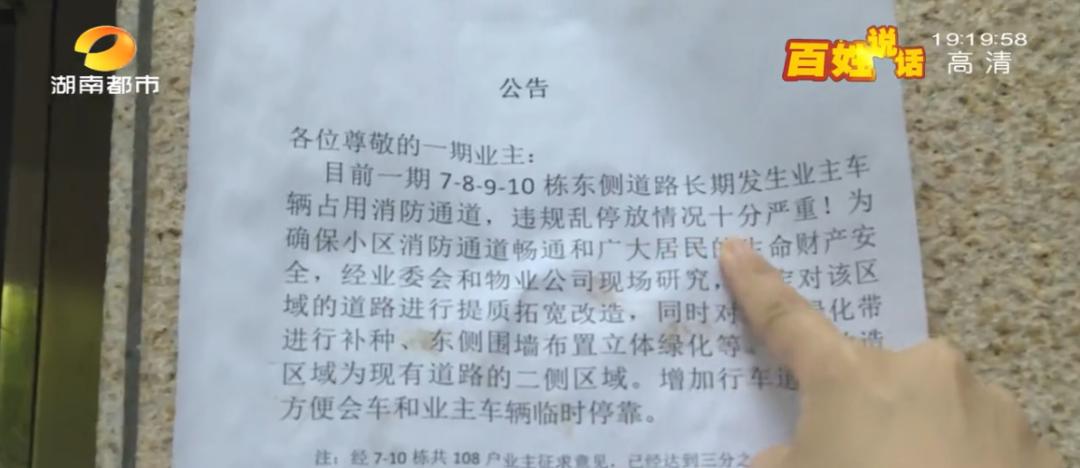 湖南都市
百姓说话
19:19:58
高清
公告
各位尊敬的一期业主：
目前一期 7-8-9-10 栋东侧道路长期发生业主车
辆占用消防通道，违规乱停放情况十分严重！为
确保小区消防通道畅通和广大居民的生命财产安
全，经业委会和物业公司现场研究，定对该区
域的道路进行提质拓宽改造，同时对绿化带
进行补种、东侧围墙布置立体绿化等、造
区域为现有道路的二侧区域。增加行车道
方便会车和业主车辆临时停靠。
注：经 7-10 栋共 108 户业主征求意见，已经达到三分之